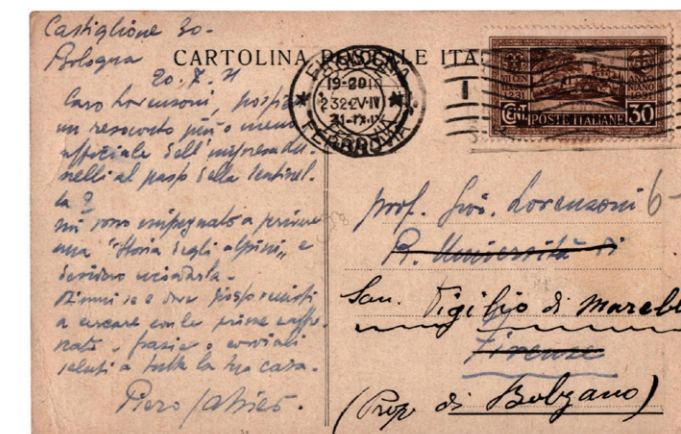 Castiglione 30-
Bologna
20.7.31
CARTOLINA POSTALE ITA
Caro Lorenzoni,
un resoconto più o meno
ufficiale dell'impresa du-
nelli al passo della Sentinel-
la?
mi sono impegnato a scrivere
una "Storia degli alpini" e
desidero ricordarla.
Dimmi se e dove
a cercare con le
grazie e cordiali
saluti a tutta la tua casa.
Piero Jahier.
19-20
FERROVIA
POSTE ITALIANE
CENT. 30
prof. Gio. Lorenzoni
R. Università di
San. Vigilio di Mareb
Firenze
(Prov di Bolzano)